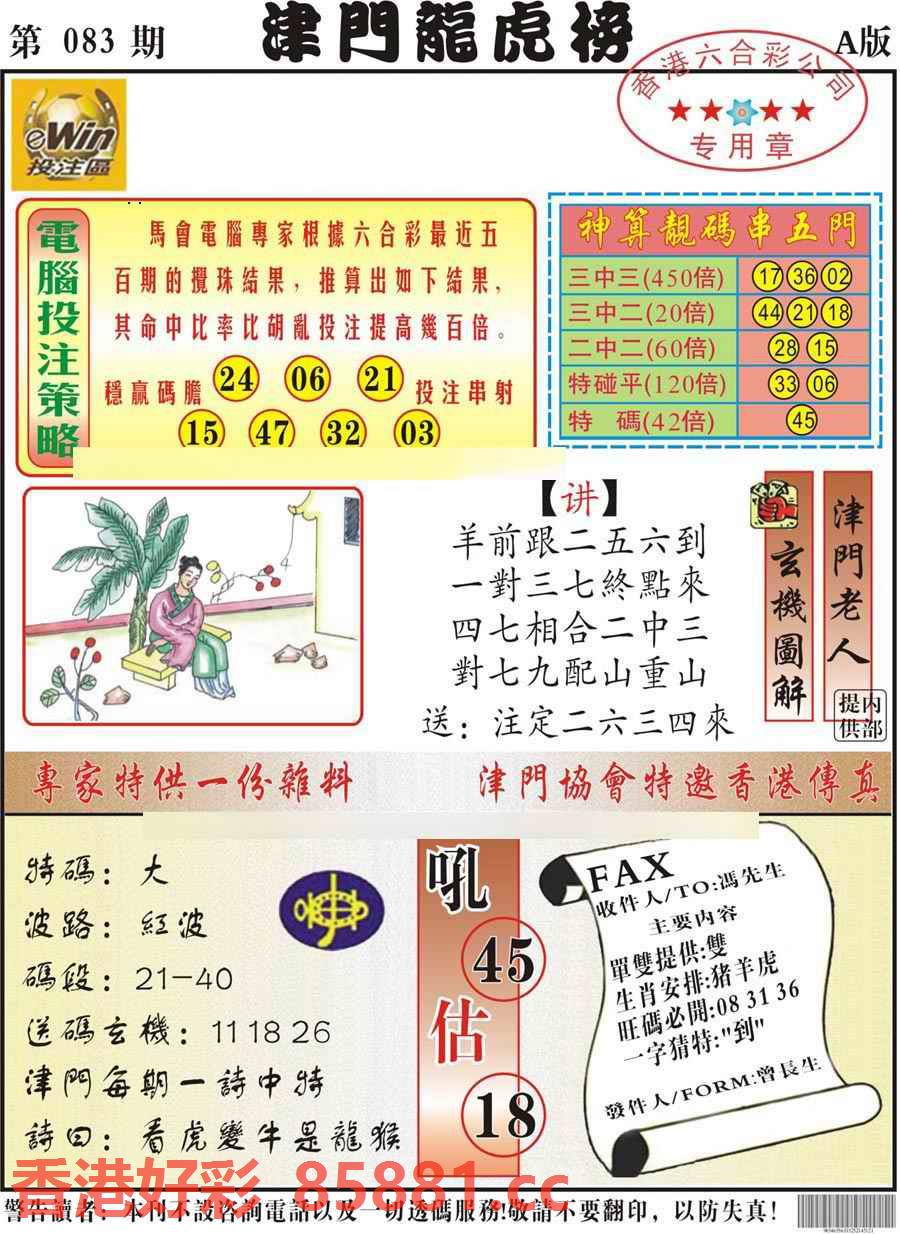 第 083 期
津門龍虎榜
A版
香港六合彩公司
专用章
eWin
投注區
電腦投注策略
馬會電腦專家根據六合彩最近五
百期的攪珠結果，推算出如下結果，
其命中比率比胡亂投注提高幾百倍。
穩贏碼膽 24 06 21 投注串射
15 47 32 03
神算靚碼串五門
三中三(450倍) 17 36 02
三中二(20倍) 44 21 18
二中二(60倍) 28 15
特碰平(120倍) 33 06
特 碼(42倍) 45
【讲】
羊前跟二五六到
一對三七終點來
四七相合二中三
對七九配山重山
送：注定二六三四來
玄機圖解
津門老人
内部提供
專家特供一份雜料
津門協會特邀香港傳真
特碼：大
波路：紅波
碼段：21-40
送碼玄機：11 18 26
津門每期一詩中特
詩曰：看虎變牛是龍猴
吼
45
估
18
FAX
收件人/TO:馮先生
主要内容
單雙提供:雙
生肖安排:猪羊虎
旺碼必開:08 31 36
一字猜特:"到"
發件人/FORM:曾長生
香港好彩 85881.cc
警告讀者：本刊不設咨詢電話以及一切透碼服務!敬請不要翻印，以防失真!